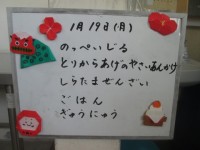 1月19日(月)
のっぺいじる
とりからあげのやさいあんかけ
しらたまぜんざい
ごはん
ぎゅうにゅう